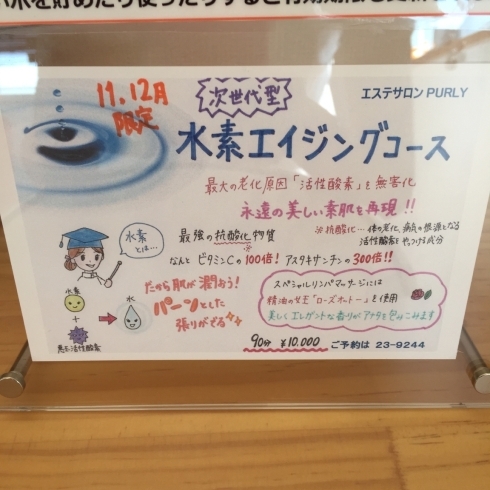 11.12月
限定
次世代型
エステサロン PURLY
水素エイジングコース
最大の老化原因「活性酸素」を無害化
永遠の美しい素肌を再現!!
水素
とは…
最強の抗酸化物質
※
※抗酸化…体の老化、病気の根源となる
活性酸素をやっつける成分
なんと ビタミンCの100倍! アスタキサンチンの300倍!!
だから肌が潤おう!
パーンとした
張りがでる
水素
+
悪玉活性酸素
→
水
スペシャルリンパマッサージには
精油の女王「ローズオットー」を使用
美しくエレガントな香りがアナタを包みこみます
90分 ¥10,000 ご予約は 23-9244